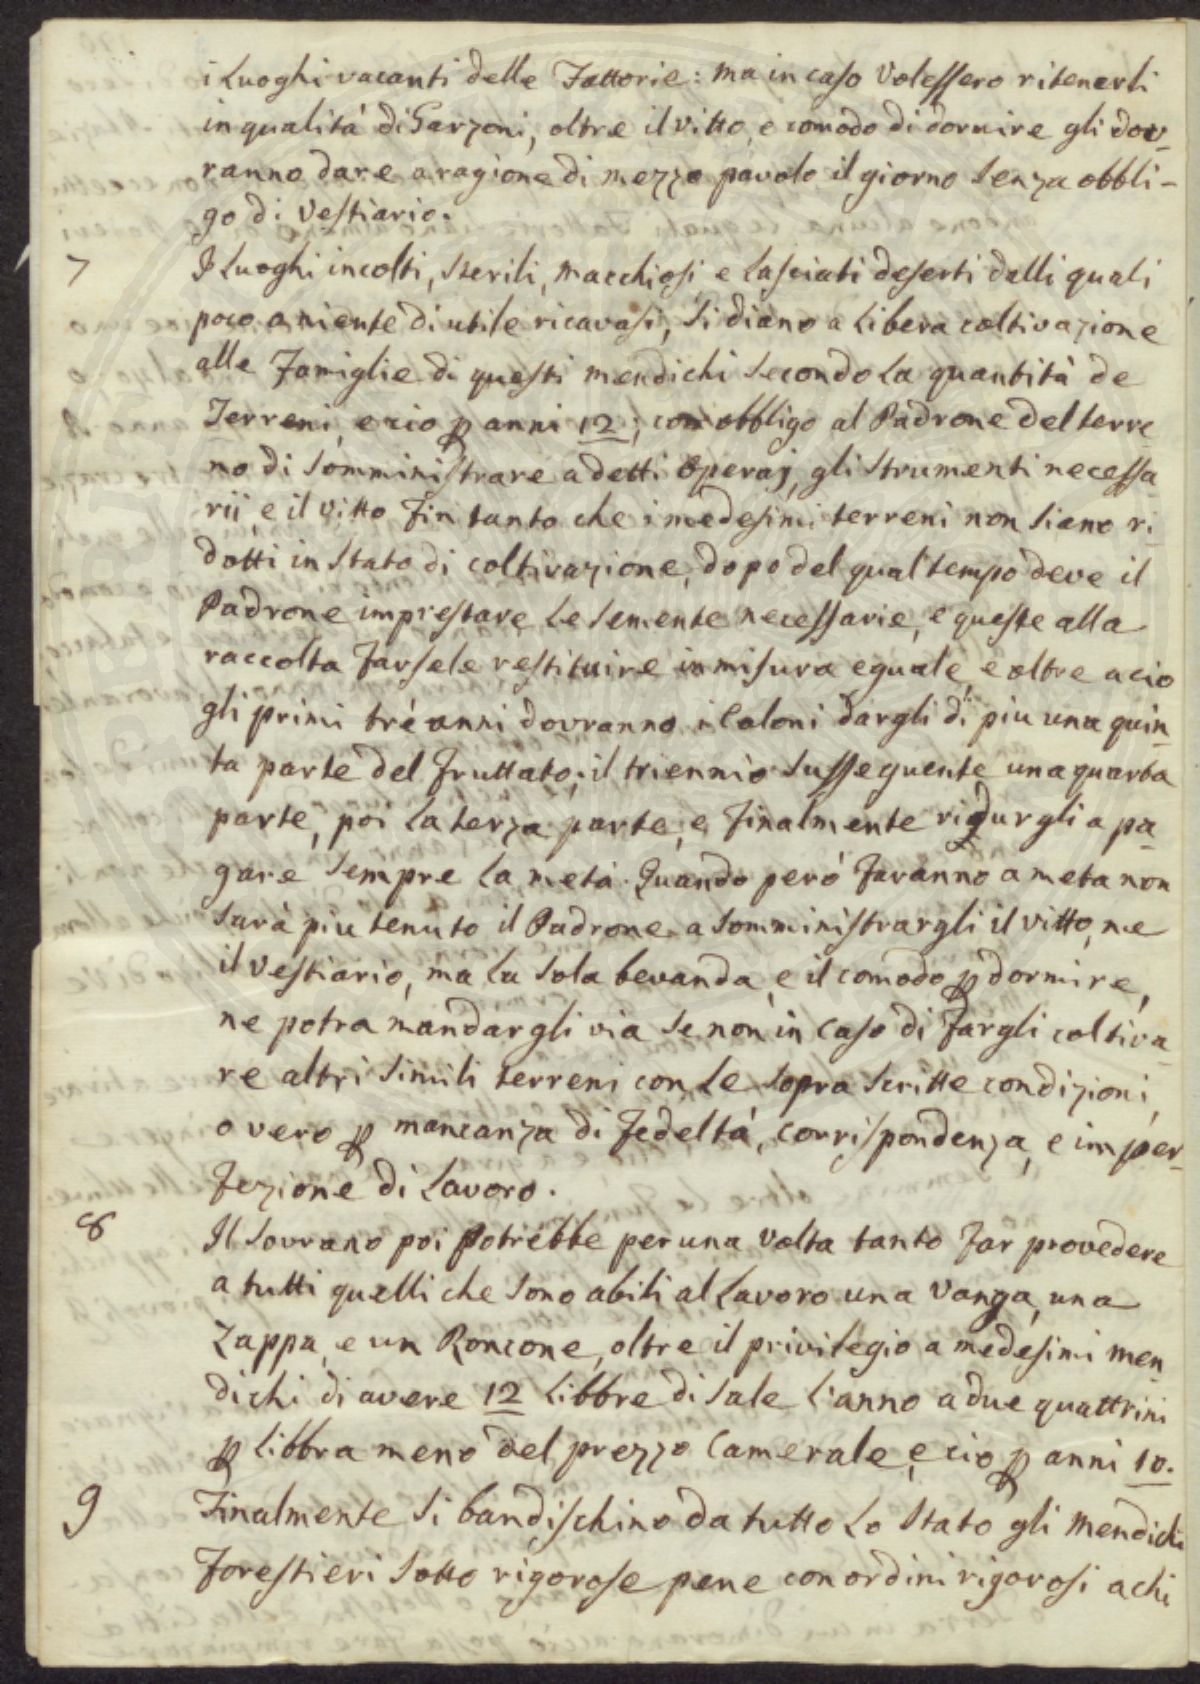 i Luoghi vacanti delle Fattorie: ma in caso Volessero ritenerli
in qualità di Garzoni, oltre il vitto, e comodo di dormire gli dov-
ranno dare a ragione di mezzo pavolo il giorno senza obbli-
go di Vestiario.
7 I Luoghi incolti, sterili, macchiosi, e Lasciati deserti dalli quali
poco o niente di utile ricavasi, si diano a Libera coltivazione
alle Famiglie di questi mendichi secondo la quantità de
Terreni, e cio p anni 12; con obbligo al Padrone del terre
no di somministrare a detti operaj, gli strumenti necessa
rii, e il vitto Fin tanto che i medesimi terreni non siano ri-
dotti in stato di coltivazione, dopo del qual tempo deve il
Padrone imprestare Le semente necessarie, e queste alla
raccolta Farsele restituire in misura eguale, e oltre a cio
gli primi trè anni dovranno i Coloni dargli di piu una quin-
ta parte del Fruttato; il triennio susseguente una quarta
parte, poi La terza parte, e Finalmente ridurgli a pa-
gare sempre La metà. Quando però Faranno a meta non
sarà piu tenuto il Padrone a somministrargli il vitto, ne
il Vestiario, ma La sola bevanda, e il comodo p dormire,
ne potra mandargli via se non in Caso di Fargli coltiva-
re altri simili terreni con Le sopra scritte condizioni,
o vero p mancanza di Fedeltà, corrispondenza, e imper-
Fezione di Lavoro.
8 Il sovrano poi potrebbe per una Volta tanto Far provedere
a tutti quelli che sono abili al Lavoro una Vanga, una
Zappa, e un Roncone, oltre il privilegio a medesimi men-
dichi di avere 12 Libbre di sale L'anno a due quattrini
p Libbra meno del prezzo Camerale, e cio p anni 10.
9 Finalmente si bandischino da tutto Lo stato gli mendichi
Forestieri sotto rigorose pene con ordini rigorosi a chi